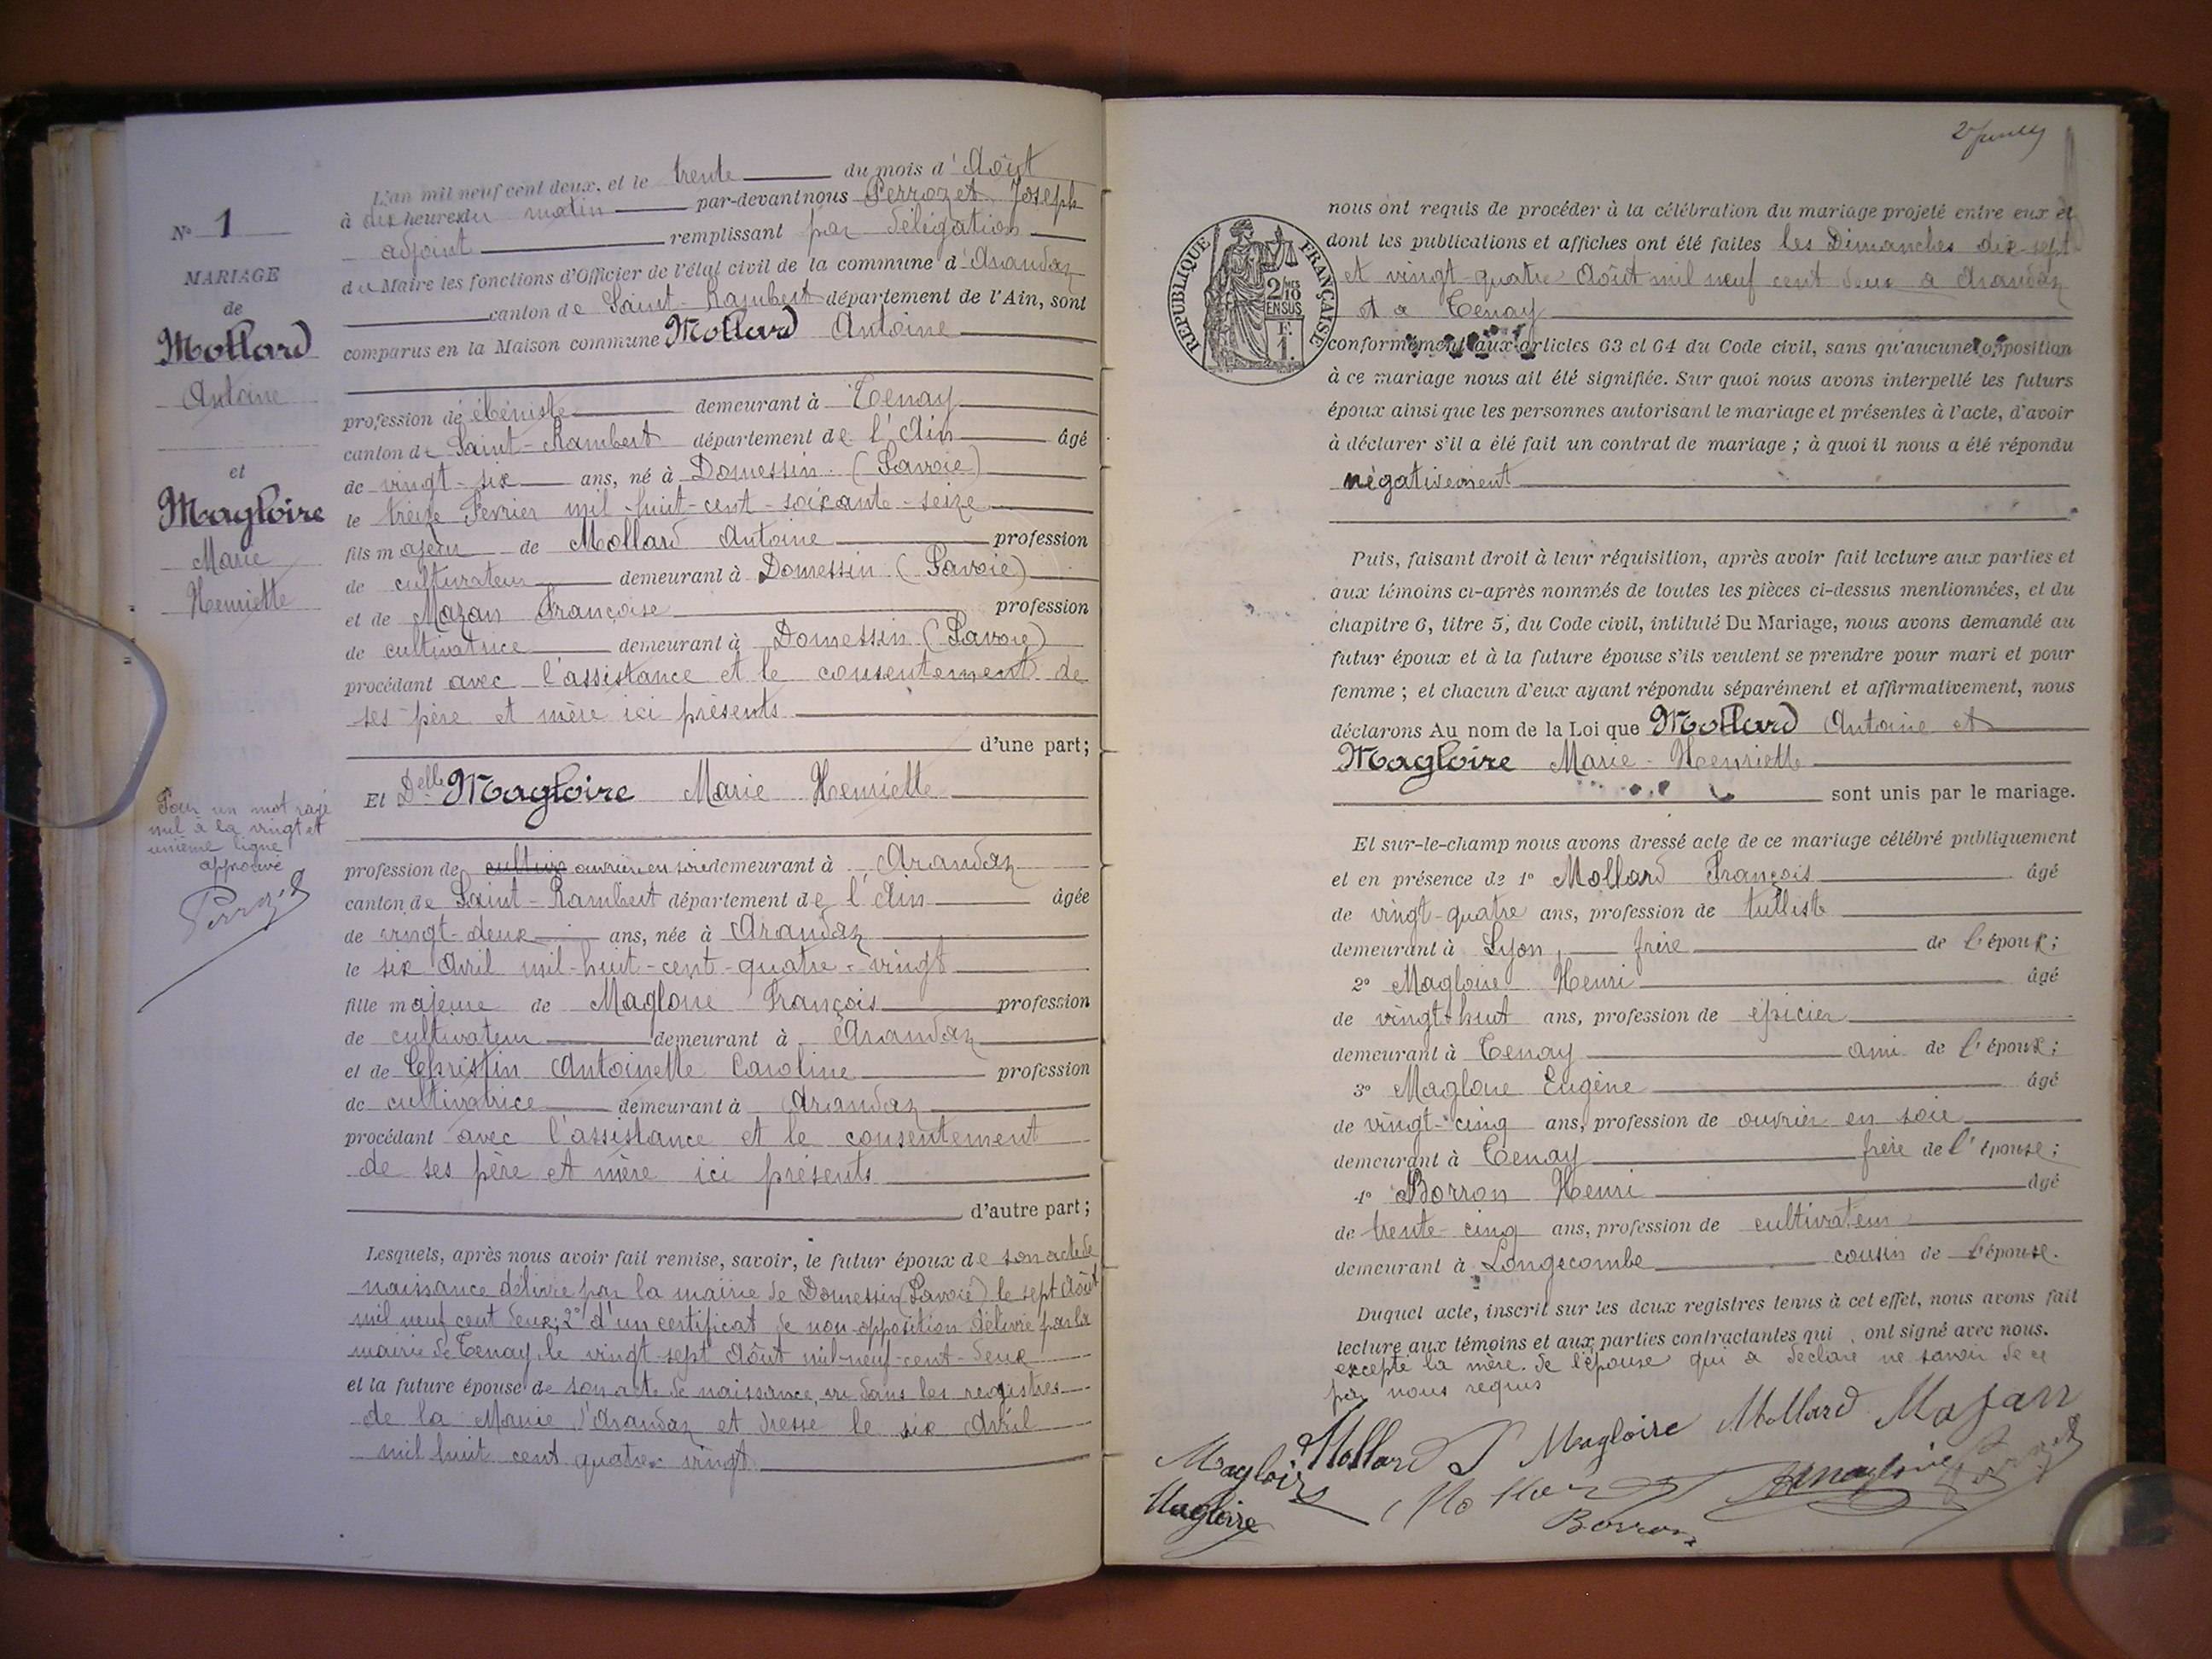 L'an mil neuf cent deux, et le trente du mois d'Août
à dix heures du matin par-devant nous Perrozet Joseph
adjoint remplissant par délégation
du Maire les fonctions d'Officier de l'état civil de la commune d'Arandaz
canton de Saint-Rambert département de l'Ain, sont
comparus en la Maison commune Mollard Antoine
profession de ébéniste demeurant à Tenay
canton de Saint-Rambert département de l'Ain âgé
de vingt-six ans, né à Domessin (Savoie)
le treize Fevrier mil-huit-cent-soixante-seize
fils majeur de Mollard Antoine profession
de cultivateur demeurant à Domessin (Savoie)
et de Mazan Françoise profession
de cultivatrice demeurant à Domessin (Savoie)
procédant avec l'assistance et le consentement de
ses père et mère ici présents
d'une part;
Et Delle Magloire Marie Henriette
profession de ouvrière en soie demeurant à Arandaz
canton de Saint-Rambert département de l'Ain âgée
de vingt-deux ans, née à Arandaz
le six Avril mil-huit-cent-quatre-vingt
fille majeure de Magloire François profession
de cultivateur demeurant à Arandaz
et de Christin Antoinette Caroline profession
de cultivatrice demeurant à Arandaz
procédant avec l'assistance et le consentement
de ses père et mère ici présents
d'autre part;
Lesquels, après nous avoir fait remise, savoir, le futur époux de son acte de
naissance délivré par la mairie de Domessin (Savoie) le sept Août
mil neuf cent deux; 2° d'un certificat de non-opposition délivré par la
mairie de Tenay, le vingt-sept Août mil-neuf-cent-deux
et la future épouse de son acte de naissance, vu dans les registres
de la Mairie d'Arandaz et dressé le six Avril
mil huit cent quatre vingt
N° 1
MARIAGE
de
Mollard
Antoine
et
Magloire
Marie
Henriette
Pour un mot rayé
nul à la vingt et
unième ligne
approuvé
Perrozet
nous ont requis de procéder à la célébration du mariage projeté entre eux et
dont les publications et affiches ont été faites les Dimanches dix-sept
et vingt-quatre Août mil neuf cent deux a Arandaz
et a Tenay
conformément aux articles 63 et 64 du Code civil, sans qu'aucune opposition
à ce mariage nous ait été signifiée. Sur quoi nous avons interpellé les futurs
époux ainsi que les personnes autorisant le mariage et présentes à l'acte, d'avoir
à déclarer s'il a été fait un contrat de mariage; à quoi il nous a été répondu
négativement
Puis, faisant droit à leur réquisition, après avoir fait lecture aux parties et
aux témoins ci-après nommés de toutes les pièces ci-dessus mentionnées, et du
chapitre 6, titre 5, du Code civil, intitulé Du Mariage, nous avons demandé au
futur époux et à la future épouse s'ils veulent se prendre pour mari et pour
femme; et chacun d'eux ayant répondu séparément et affirmativement, nous
déclarons Au nom de la Loi que Mollard Antoine et
Magloire Marie-Henriette
sont unis par le mariage.
Et sur-le-champ nous avons dressé acte de ce mariage célébré publiquement
et en présence de 1° Mollard François âgé
de vingt-quatre ans, profession de tulliste
demeurant à Lyon, frère de l'époux;
2° Magloire Henri âgé
de vingt-huit ans, profession de épicier
demeurant à Tenay ami de l'époux;
3° Magloire Eugène âgé
de vingt-cinq ans, profession de ouvrier en soie
demeurant à Tenay frère de l'épouse;
4° Borron Henri âgé
de trente-cinq ans, profession de cultivateur
demeurant à Longecombe cousin de l'épouse.
Duquel acte, inscrit sur les deux registres tenus à cet effet, nous avons fait
lecture aux témoins et aux parties contractantes qui ont signé avec nous.
excepté la mère de l'épouse qui a déclaré ne savoir de ce
par nous requis
Mollard Magloire Mollard Mazan
Magloire
Magloire Borron
RÉPUBLIQUE FRANÇAISE
2/10MES
EN SUS
F.
1.